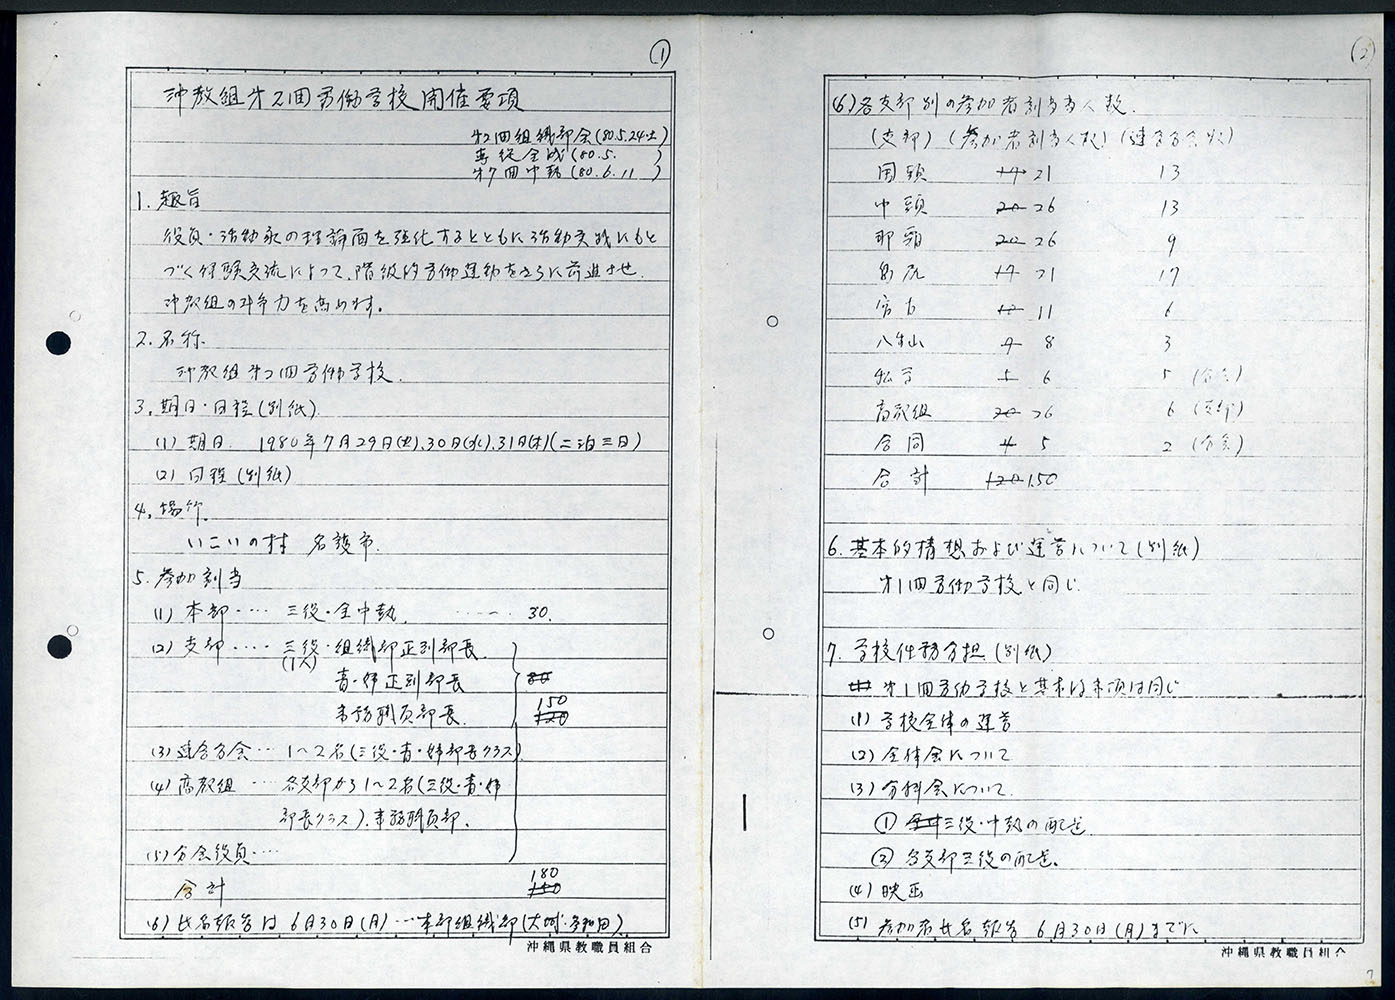 ①
沖教組オ2回労働学校開催要項
オ2回組織部会(80.5.24土)
専従会議(80.5.  )
オ7回中執(80.6.11  )
1. 趣旨
役員・活動家の理論面を強化するとともに活動実践にもと
づく体験交流によって、階級的労働運動をさらに前進させ
沖教組の斗争力を高めます。
2. 名称
沖教組オ2回労働学校.
3. 期日・日程(別紙)
(1) 期日. 1980年7月29日(火).30日(水).31日(木)(二泊三日)
(2) 日程(別紙)
4. 場所.
いこいの村 名護市.
5. 参加割当
(1) 本部‥‥ 三役・全中執. ‥‥ 30.
(2) 支部‥‥ 三役・組織部正副部長.
(1人)
青・婦正副部長 80
事務職員部長. 150 120
(3) 連合分会‥ 1〜2名(三役・青・婦部長クラス)
(4) 高教組‥‥ 各支部から1〜2名(三役・青・婦
部長クラス).事務職員部.
(5) 分会役員‥‥
合計 180 150
(6) 氏名報告は 6月30日(月)‥‥本部組織部
沖縄県教職員組合
②
(6) 各支部別の参加者割当人数.
(支部) (参加者割当人数) (連合分会数)
国頭 17 21 13
中頭 20 26 13
那覇 20 26 9
島尻 17 21 17
宮古 10 11 6
八重山 7 8 3
私学 5 6 5 (分会)
高教組 20 26 6 (支部)
合同 4 5 2 (分会)
合計 120 150
6. 基本的構想および運営について(別紙)
オ1回労働学校と同じ.
7. 学校任務分担(別紙)
オ1回労働学校と基本的事項は同じ
(1) 学校全体の運営
(2) 全体会について
(3) 分科会について.
① 三役・中執の配置
② 各支部三役の配置.
(4) 映画
(5) 参加者氏名報告 6月30日(月)までに
沖縄県教職員組合
7